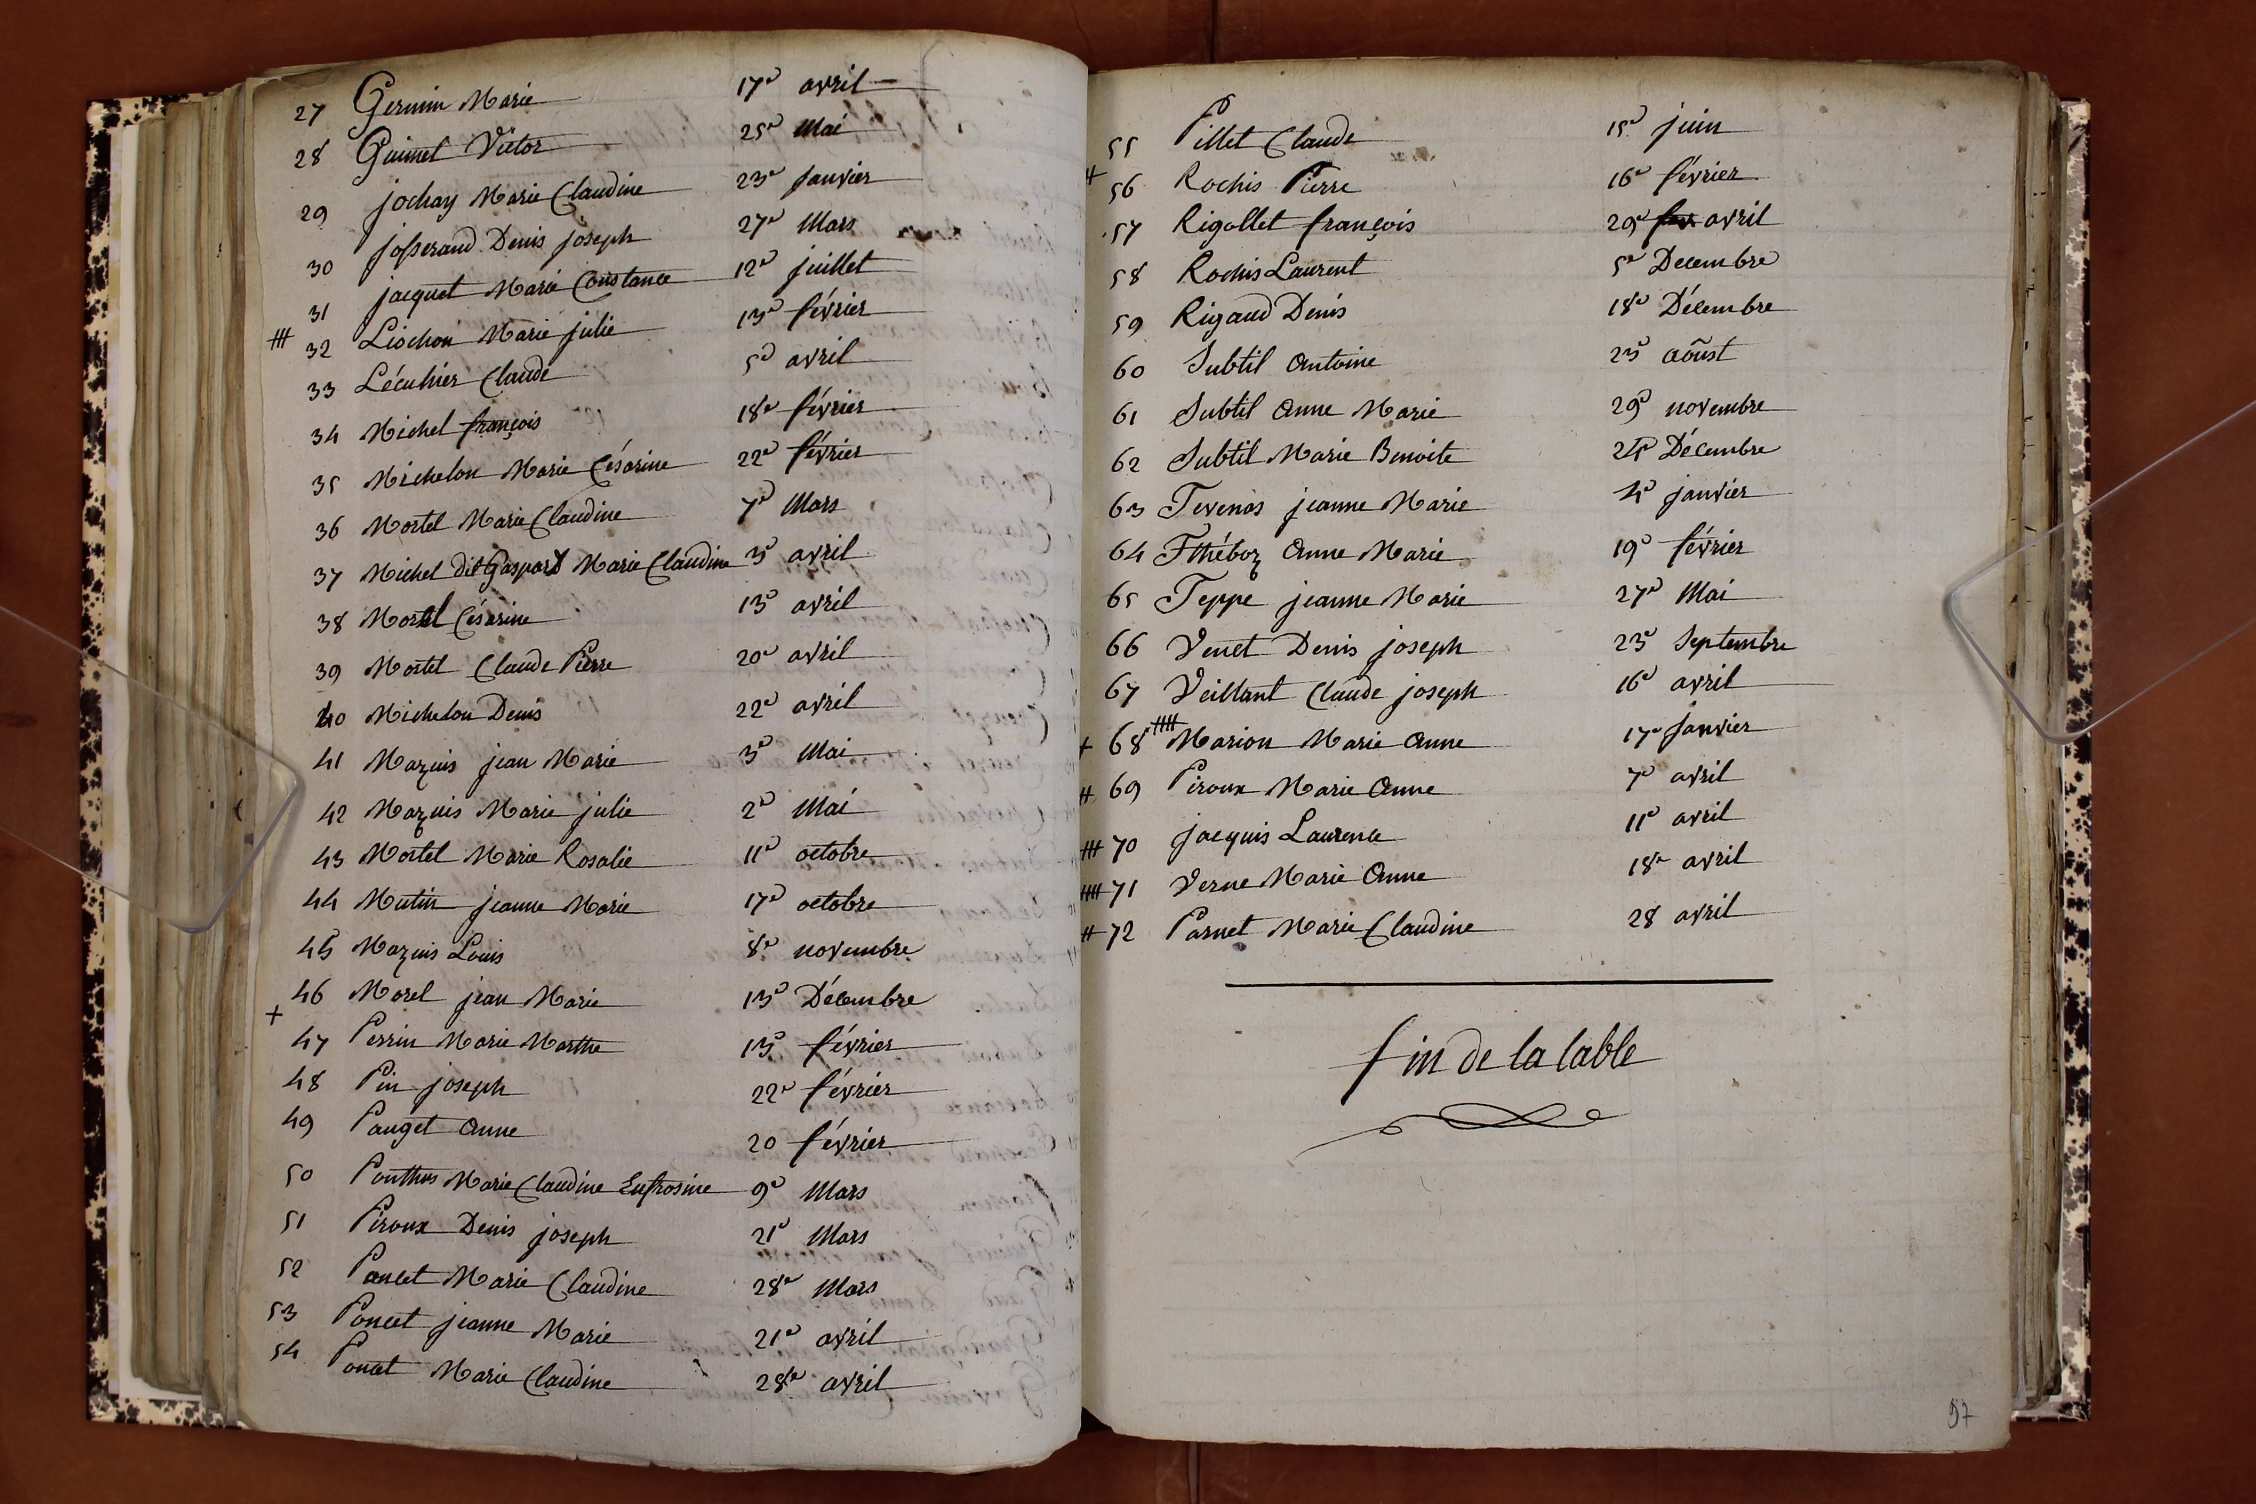 27 Germin Marie 17e avril
28 Guimet Victor 25e Mai
29 jochay Marie Claudine 23e janvier
30 josserand Denis joseph 27e Mars
31 jacquet Marie Constance 12e juillet
# 32 Liochon Marie julie 13e février
33 Lécuhier Claude 5e avril
34 Michel françois 18e février
35 Michelon Marie Césarine 22e février
36 Mortel Marie Claudine 7e Mars
37 Michel dit Gaspard Marie Claudine 3e avril
38 Mortel Césarine 13e avril
39 Mortel Claude Pierre 20e avril
40 Michelon Denis 22e avril
41 Mazuis jean Marie 3e Mai
42 Mazuis Marie julie 2e Mai
43 Mortel Marie Rosalie 11e octobre
44 Mutin jeanne Marie 17e octobre
45 Mazuis Louis 8e novembre
46 Morel jean Marie 13e Décembre
+ 47 Perrin Marie Marthe 13e février
48 Pin joseph 22e février
49 Pauget anne 20 février
50 Ponthus Marie Claudine Eufrosine 9e Mars
51 Piroux Denis joseph 21e Mars
52 Poncet Marie Claudine 28e Mars
53 Poncet jeanne Marie 21e avril
54 Poncet Marie Claudine 28e avril
55 Pillet Claude 15e juin
# 56 Rochis Pierre 16e février
57 Rigollet françois 29e avril
58 Rochis Laurent 5e Decembre
59 Rigaud Denis 18e Décembre
60 Subtil antoine 23e aoûst
61 Subtil anne Marie 29e novembre
62 Subtil Marie Benoite 24e Décembre
63 Tevenos jeanne Marie 4e janvier
64 Tthéboz anne Marie 19e février
65 Teppe jeanne Marie 27e Mai
66 Venet Denis joseph 23e Septembre
67 Veillant Claude joseph 16e avril
+ 68 # Marion Marie anne 17e janvier
# 69 Piroux Marie anne 7e avril
# 70 jacquis Laurence 11e avril
# 71 Verne Marie anne 18e avril
# 72 Parnet Marie Claudine 28 avril
fin de la table
57